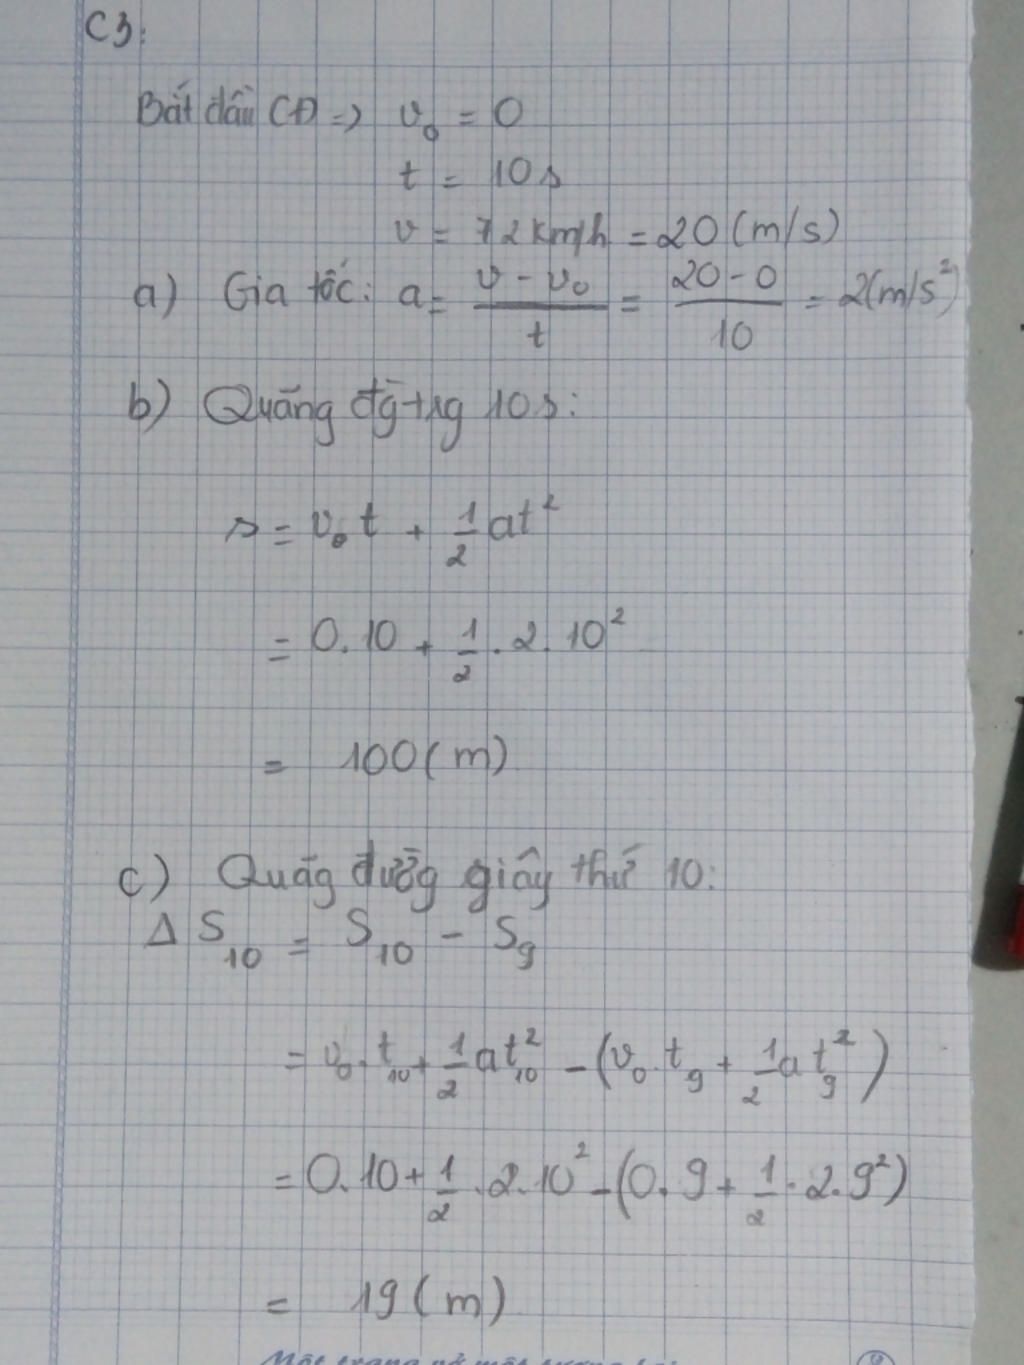 C3:
Bắt đầu CĐ => v₀ = 0
t = 10s
v = 72 km/h = 20 (m/s)
a) Gia tốc: a = (v - v₀)/t = (20 - 0)/10 = 2(m/s²)
b) Quãng đg trg 10s:
s = v₀t + 1/2 at²
= 0.10 + 1/2 . 2. 10²
= 100 (m)
c) Quãg đườg giây thứ 10:
Δ S₁₀ = S₁₀ - S₉
= v₀.t₁₀ + 1/2 at₁₀² - (v₀.t₉ + 1/2 at₉²)
= 0.10 + 1/2 .2.10² - (0.9 + 1/2 . 2.9²)
= 19 (m)